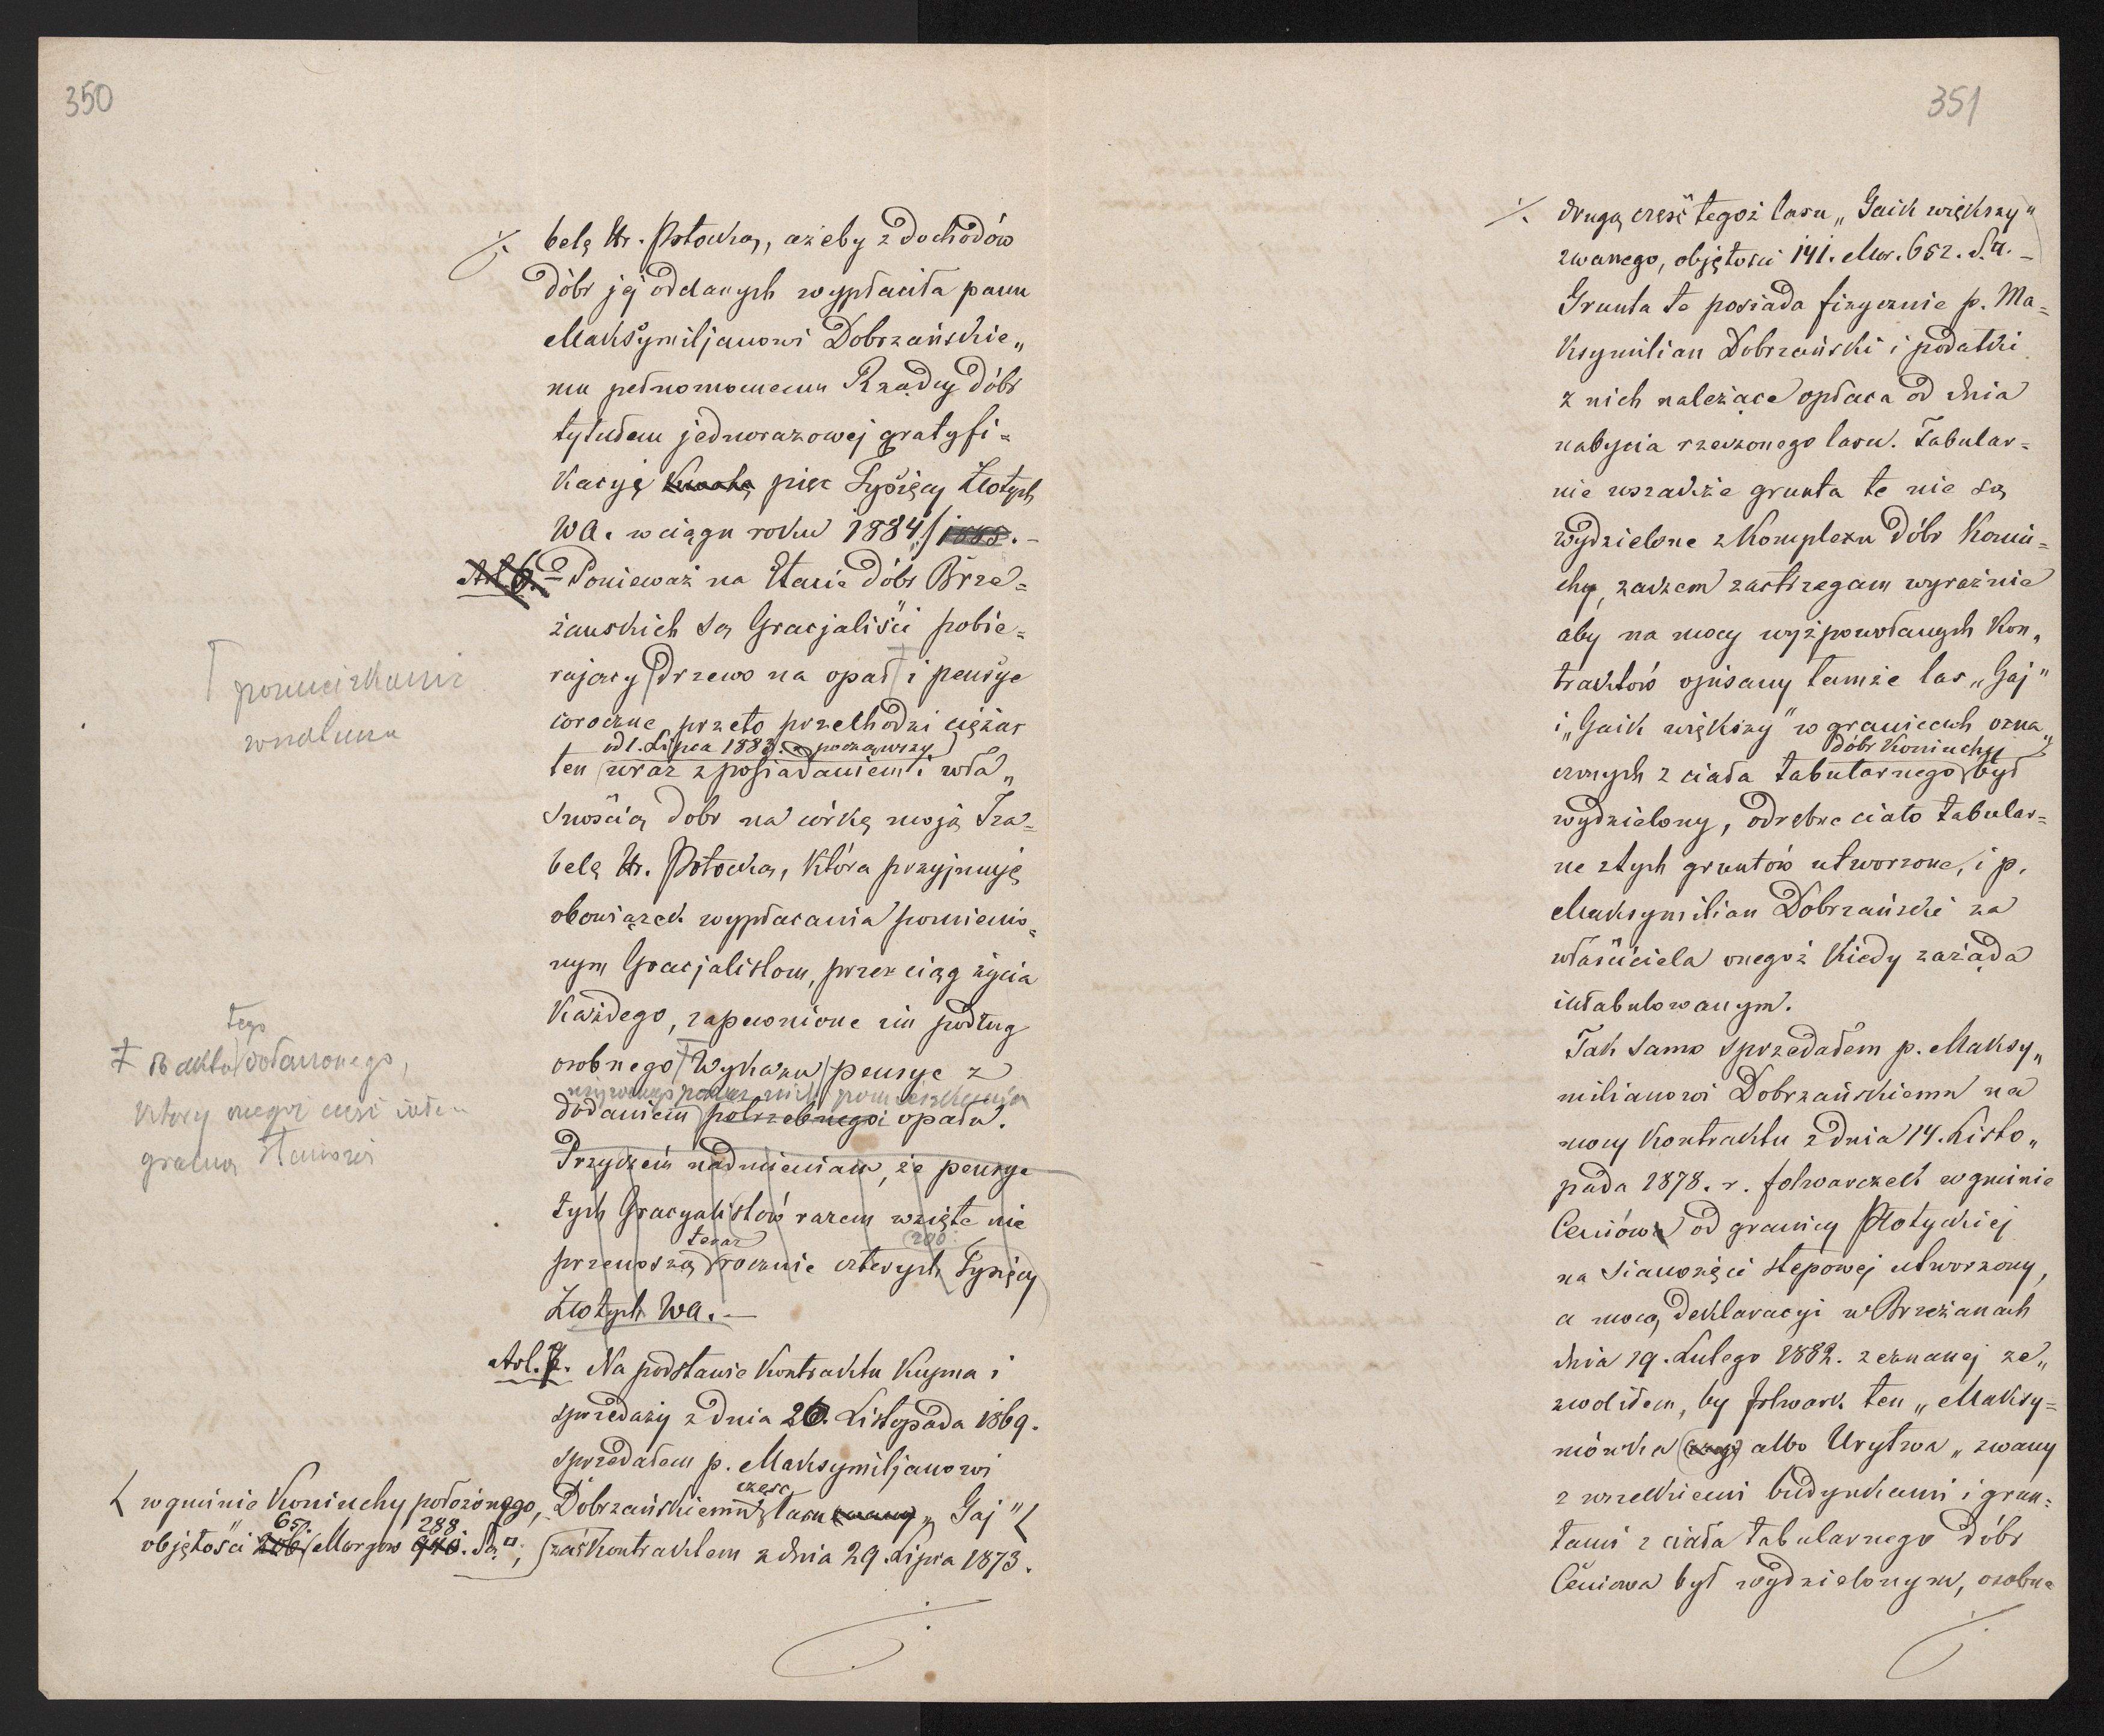 350
belę Hr. Potocką, ażeby z dochodów
dóbr jej oddanych wypłaciła panu
Maksymiljanowi Dobrzańskie„
mu pełnomocnemu Rządcy dóbr
tytułem jednorazowej gratyfi=
kacyę kwotę pięc Tysięcy Złotych
WA. w ciągu roku 1884/1885.–
Art. 6. Ponieważ na Etacie dóbr Brze=
żańskich są Gracjaliści pobie=
rający drzewo na opał i pensye
coroczne, przeto przechodzi ciężar
od 1. Lipca 1883. począwszy
ten wraz z posiadaniem i wła„
snością dóbr na córkę moją Iza=
belę Hr. Potocką, która przyjmuje
obowiązek wypłacania pomienio=
nym Gracjalistom, przez ciąg życia
każdego, zapewnione im podług
osobnego Wykazu pensye z
używanego przez nich pomieszkania
dodaniem potrzebnego opału.
Przyczem nadmieniam, że pensye
tych Gracyalistów razem wzięte nie
teraz 200
przenoszą rocznie czterych Tysięcy
Złotych WA.—
Art. 7. Na podstawie Kontraktu Kupna i
sprzedaży z dnia 26. Listopada 1869.
sprzedałem p. Maksymiljanowi
częsc
Dobrzańskiemu lasu zwany „Gaj"
zaś Kontraktem z dnia 29. Lipca 1873.
pomieszkanie
tego
do aktu dołączonego,
który onegoż część inte
gralną stanowi
w gminie Koniuchy położonego,
65. 288
objętości 206 Morgow 940. Są□;
351
drugą część tegoż lasu „Gaik większy"
zwanego, objętości 141. Mor. 652. S.□.–
Grunta te posiada fizycznie p. Ma=
ksymilian Dobrzański i podatki
z nich należące opłaca od dnia
nabycia rzeczonego lasu. Tabular=
nie wszakże grunta te nie są
wydzielone z Komplexu dóbr Koniu=
chy, zaczem zastrzegam wyraźnie
aby na mocy wyżpowołanych Kon„
traktów opisany tamże las „Gaj"
i „Gaik większy" w granicach ozna„
dóbr Koniuchy
czonych z ciała tabularnego był
wydzielony, odrębne ciało tabular=
ne z tych gruntów utworzone, i p.
Maksymilian Dobrzański za
właściciela onegoż kiedy zażąda
intabulowanym.
Tak samo sprzedałem p. Maksy„
milianowi Dobrzańskiemu na
mocy Kontraktu z dnia 14. Listo„
pada 1878. r. folwarczek w gminie
Ceniów od granicy Płotyckiej
na sianożęci stepowej utworzony,
a mocą deklaracyi w Brzeżanach
dnia 19. Lutego 1882. zeznanej ze„
zwoliłem, by folwark ten „Maksy=
mówka albo Urytwa„ zwany
z wszelkiemi budynkami i grun=
tami z ciała tabularnego dóbr
Ceniowa był wydzielonym, osobne